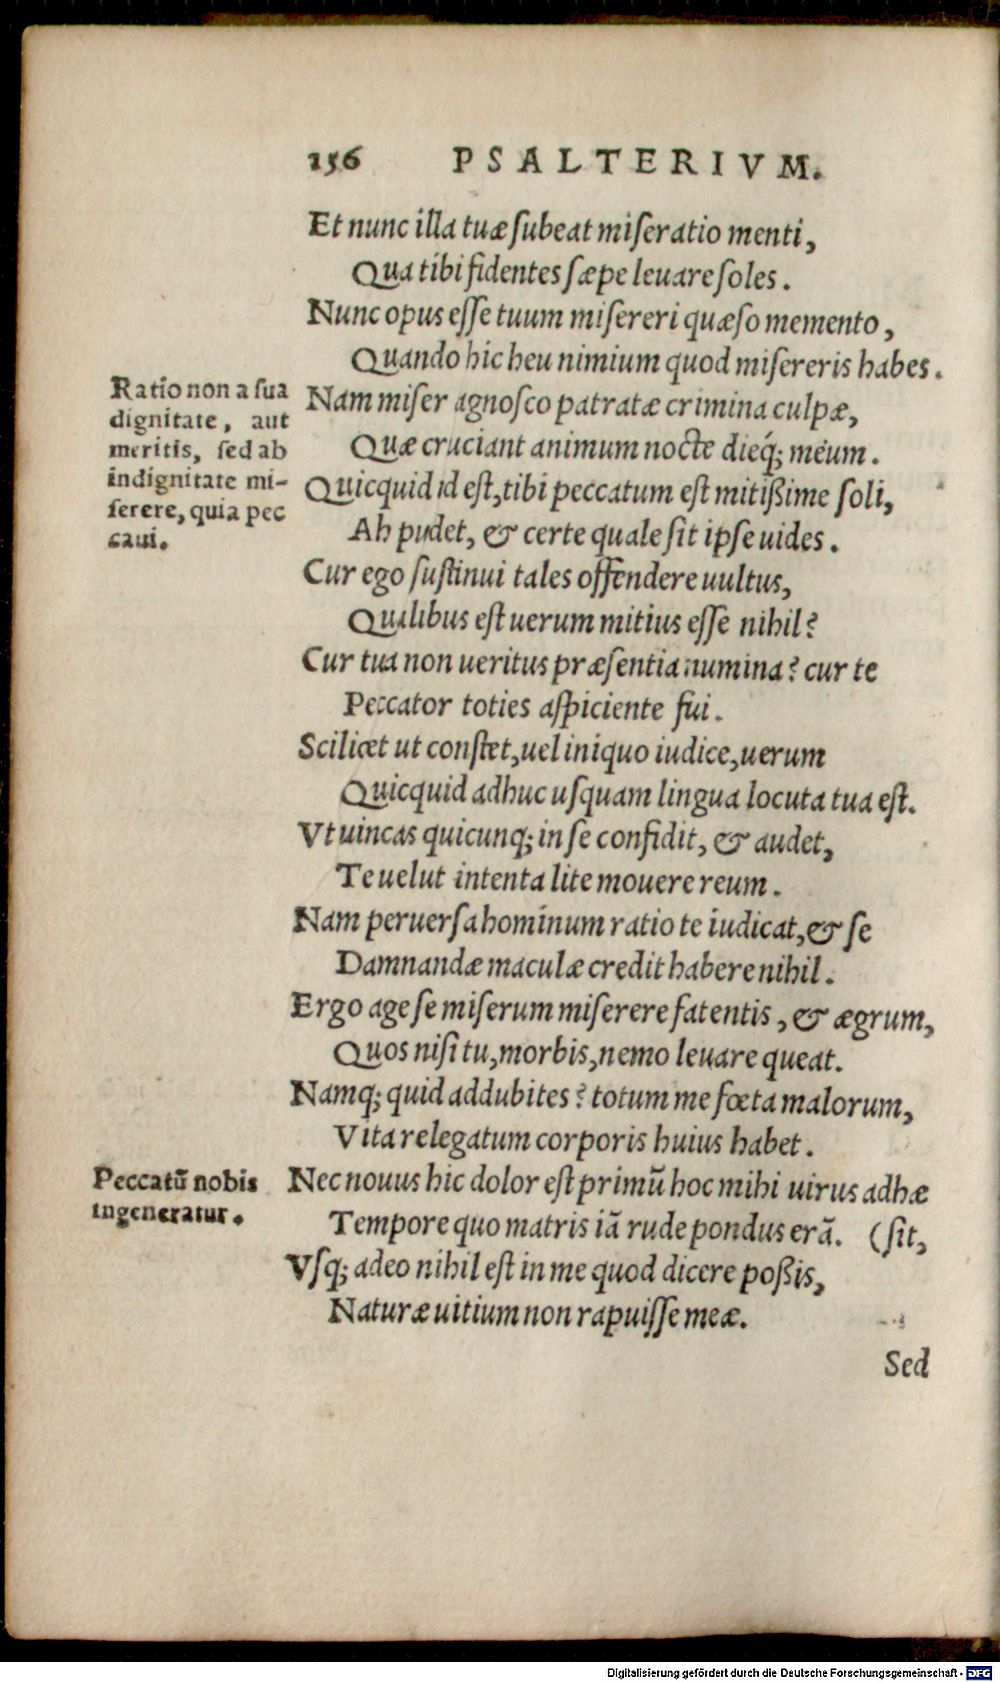 156 PSALTERIVM.
Et nunc illa tuæ ſubeat miſeratio menti,
Qua tibi fidentes ſæpe leuare ſoles.
Nunc opus eſſe tuum miſereri quæſo memento,
Quando hic heu nimium quod miſereris habes.
Ratio non a ſua
dignitate, aut
meritis, ſed ab
indignitate mi-
ſerere, quia pec
caui.
Nam miſer agnoſco patratæ crimina culpæ,
Quæ cruciant animum nocte dieq́; meum.
Quicquid id eſt, tibi peccatum eſt mitißime ſoli,
Ah pudet, & certe quale ſit ipſe uides.
Cur ego ſuſtinui tales offendere uultus,
Qualibus eſt uerum mitius eſſe nihil?
Cur tua non ueritus præſentia numina? cur te
Peccator toties aſpiciente fui.
Scilicet ut conſtet, uel iniquo iudice, uerum
Quicquid adhuc uſquam lingua locuta tua eſt.
Vt uincas quicunq; in ſe confidit, & audet,
Te uelut intenta lite mouere reum.
Nam peruerſa hominum ratio te iudicat, & ſe
Damnandæ maculæ credit habere nihil.
Ergo age ſe miſerum miſerere fatentis, & ægrum,
Quos niſi tu, morbis, nemo leuare queat.
Namq; quid addubites? totum me fœta malorum,
Vita relegatum corporis huius habet.
Peccatū nobis
ingeneratur.
Nec nouus hic dolor eſt primū hoc mihi uirus adhæ
Tempore quo matris iā rude pondus erā. (ſit,
Vſq; adeo nihil eſt in me quod dicere poßis,
Naturæ uitium non rapuiſſe meæ.
Sed
Digitalisierung gefördert durch die Deutsche Forschungsgemeinschaft - DFG